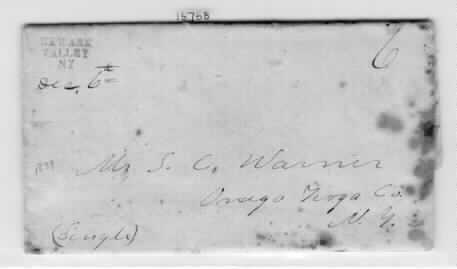 15758
NEWARK
VALLEY
NY
Dec. 6th
6
1839
Mr. S. C. Warner
Owego Tioga Co.
N. Y.
(Single)